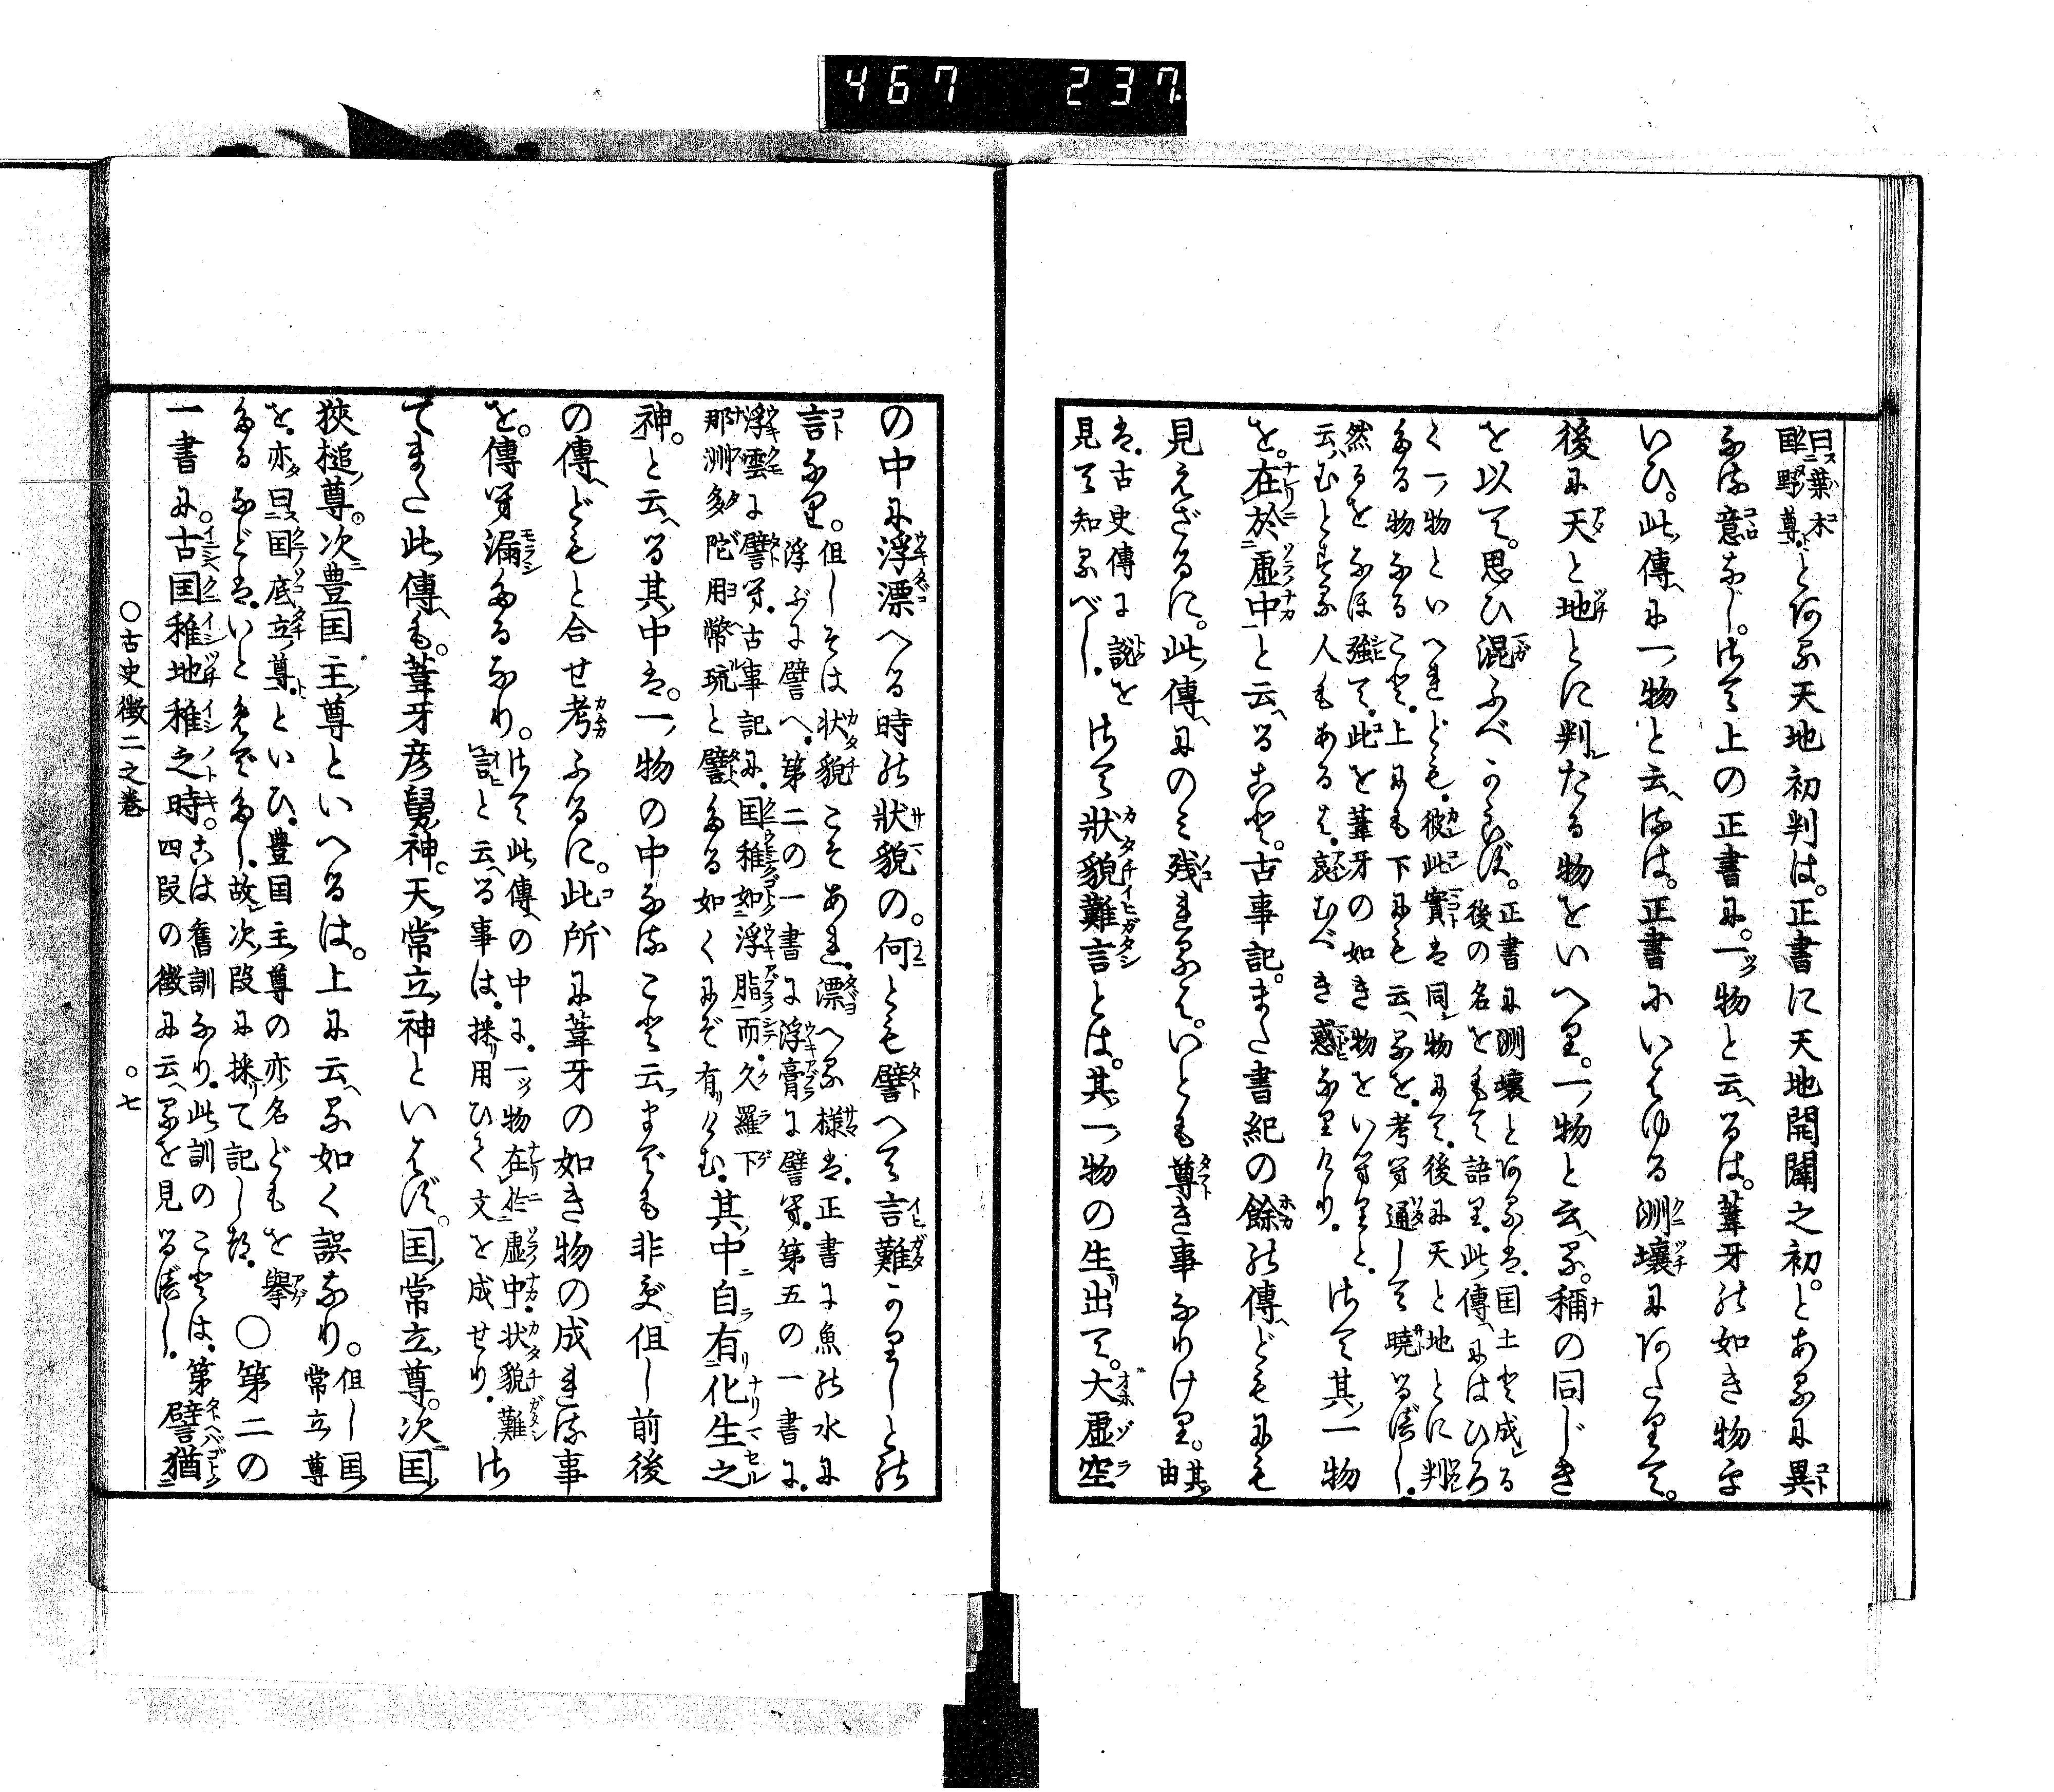 467 237.
曰葉木
国野尊。とある天地初判は。正書に天地開闢之初。とあるに異
なる意なし。さて上の正書に。一物と云へるは。葦牙の如き物を
いひ。此傳に一物と云へるは。正書にいはゆる洲壤にあたりて。
後に天と地とに判たる物をいへり。一物と云へる。稱の同じき
を以て。思ひ混ふべからず。正書に洲壤とあるは。国土と成る
後の名をもて語り。此傳にはひろ
く一物といへれども。彼此實は同物にて。後に天と地とに判
たる物なること。上にも下にも云へるを。考へ通して曉るべし。
然るをなほ強て。此を葦牙の如き物をいへりと。
云むとする人もあるは。哀むべき惑なりけり。さて其一物
を。在於虚中と云へること。古事記。また書紀の餘の傳どもにも
見えざるに。此傳にのみ残れるは。いとも尊き事なりけり。其由
は。古史傳に説を
見て知るべし。さて狀貌難言とは。其一物の生出て。大虚空
の中に浮漂へる時の狀貌の。何とも譬へて言難かりしとの
言なり。但しそは狀貌こそあれ。漂へる様は。正書に魚の水に
浮ぶに譬へ。第二の一書に浮膏に譬へ。第五の一書に。
浮雲に譬へ。古事記に。国稚如浮脂而。久羅下
那洲多陀用幣琉と譬たる如くにぞ有けむ。其中自有化生之
神。と云へる其中は。一物の中なること云までも非ず。但し前後
の傳どもと合せ考ふるに。此所に葦牙の如き物の成れる事
を。傳へ漏たるなり。さて此傳の中に。一物在於虚中。狀貌難
言と云へる事は。採用ひて文を成せり。さ
てまた此傳も。葦牙彦舅神。天常立神といはず。国常立尊。次国
狹槌尊。次豊国主尊といへるは。上に云へる如く誤なり。但し国
常立尊
を。亦曰国底立尊といひ。豊国主尊の亦名どもを擧
たるなどは。いとめでたし。故次段に採て記しぬ。○第二の
一書に。古国稚地稚之時。古は舊訓なり。此訓のことは。第
四段の徴に云へるを見るべし。譬猶
○古史徴二之巻 ○七